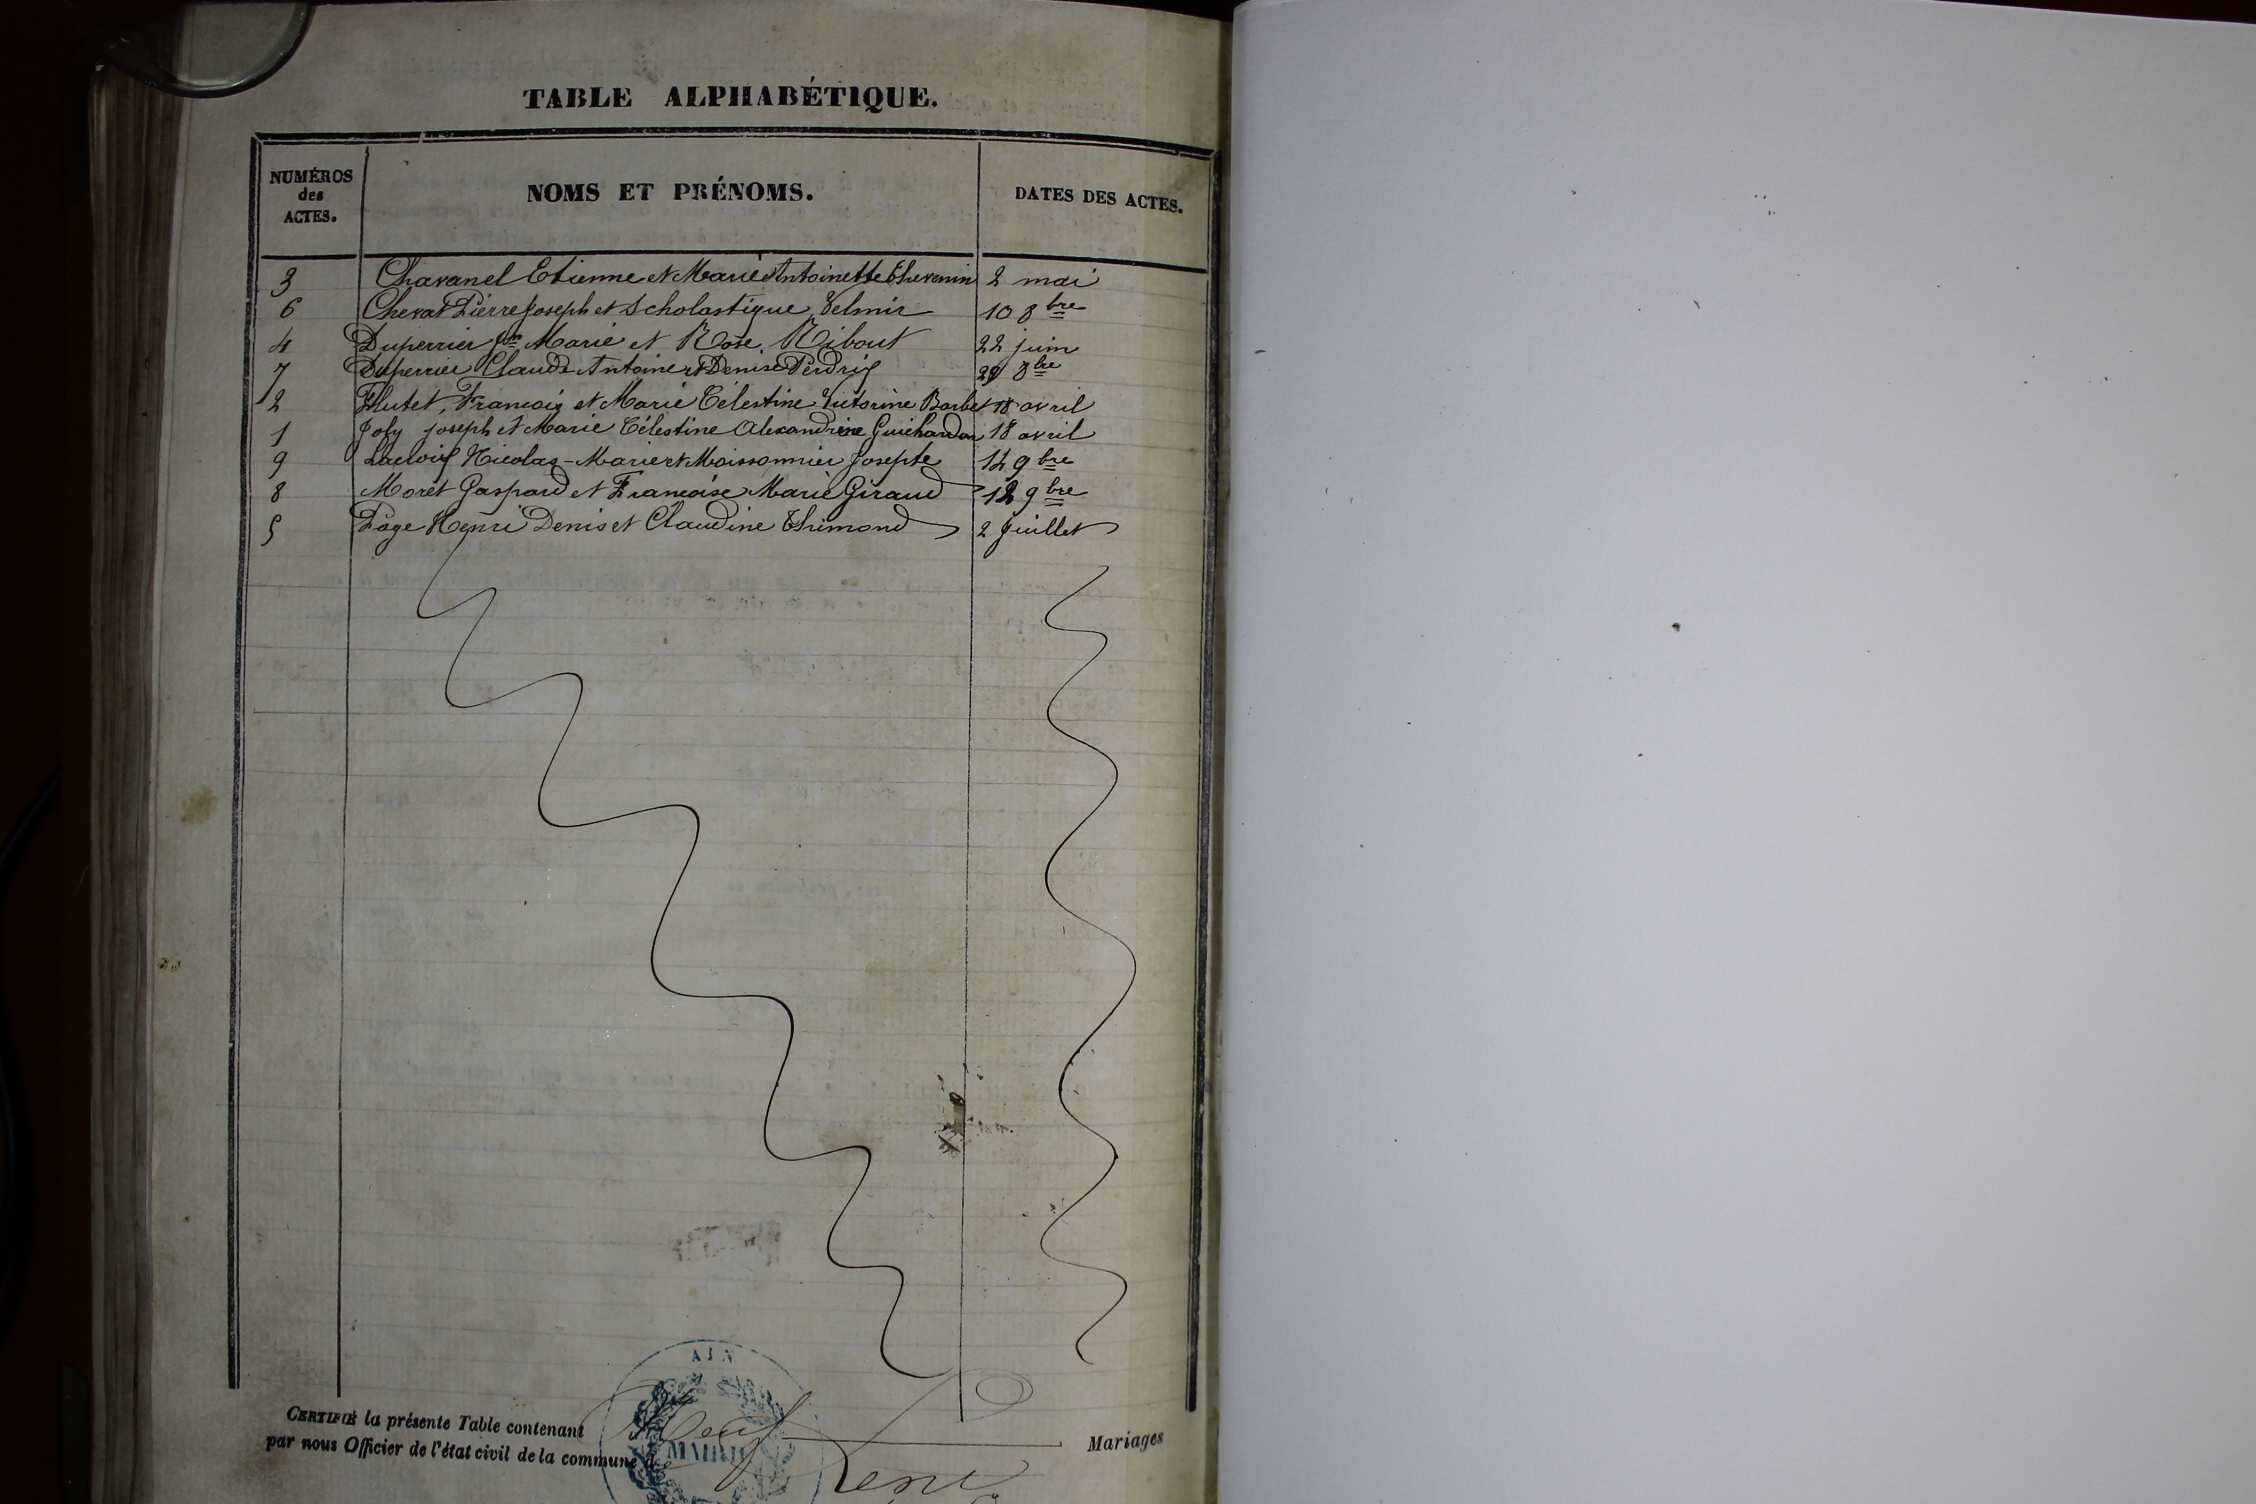 TABLE ALPHABÉTIQUE.
NUMÉROS des ACTES. NOMS ET PRÉNOMS. DATES DES ACTES.
3 Chavanel Etienne et Marie Antoinette Thevenin 2 mai
6 Chevat Pierre Joseph et Scholastique Velmir 10 8bre
4 Duperrier Jn Marie et Rose Ribout 22 juin
7 Duperrier Claude Antoine et Denise Perdrix 29 8bre
2 Flutet, François et Marie Célestine Victorine Barbet 18 avril
1 Joly joseph et Marie Célestine Alexandrine Guichardon 18 avril
9 Lacroix Nicolas-Marie et Moissonnier Josepte 14 9bre
8 Moret Gaspard et Françoise Marie Giraud 12 9bre
5 Page Henri Denis et Claudine Thimond 2 Juillet
CERTIFIÉ la présente Table contenant Neuf Mariages
par nous Officier de l'état civil de la commune d
AIN
MAIRIE